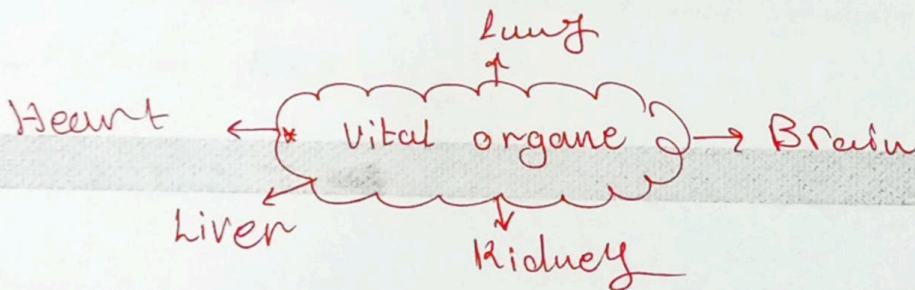 Lung
Heart
* Vital organe
Brain
Liver
Kidney